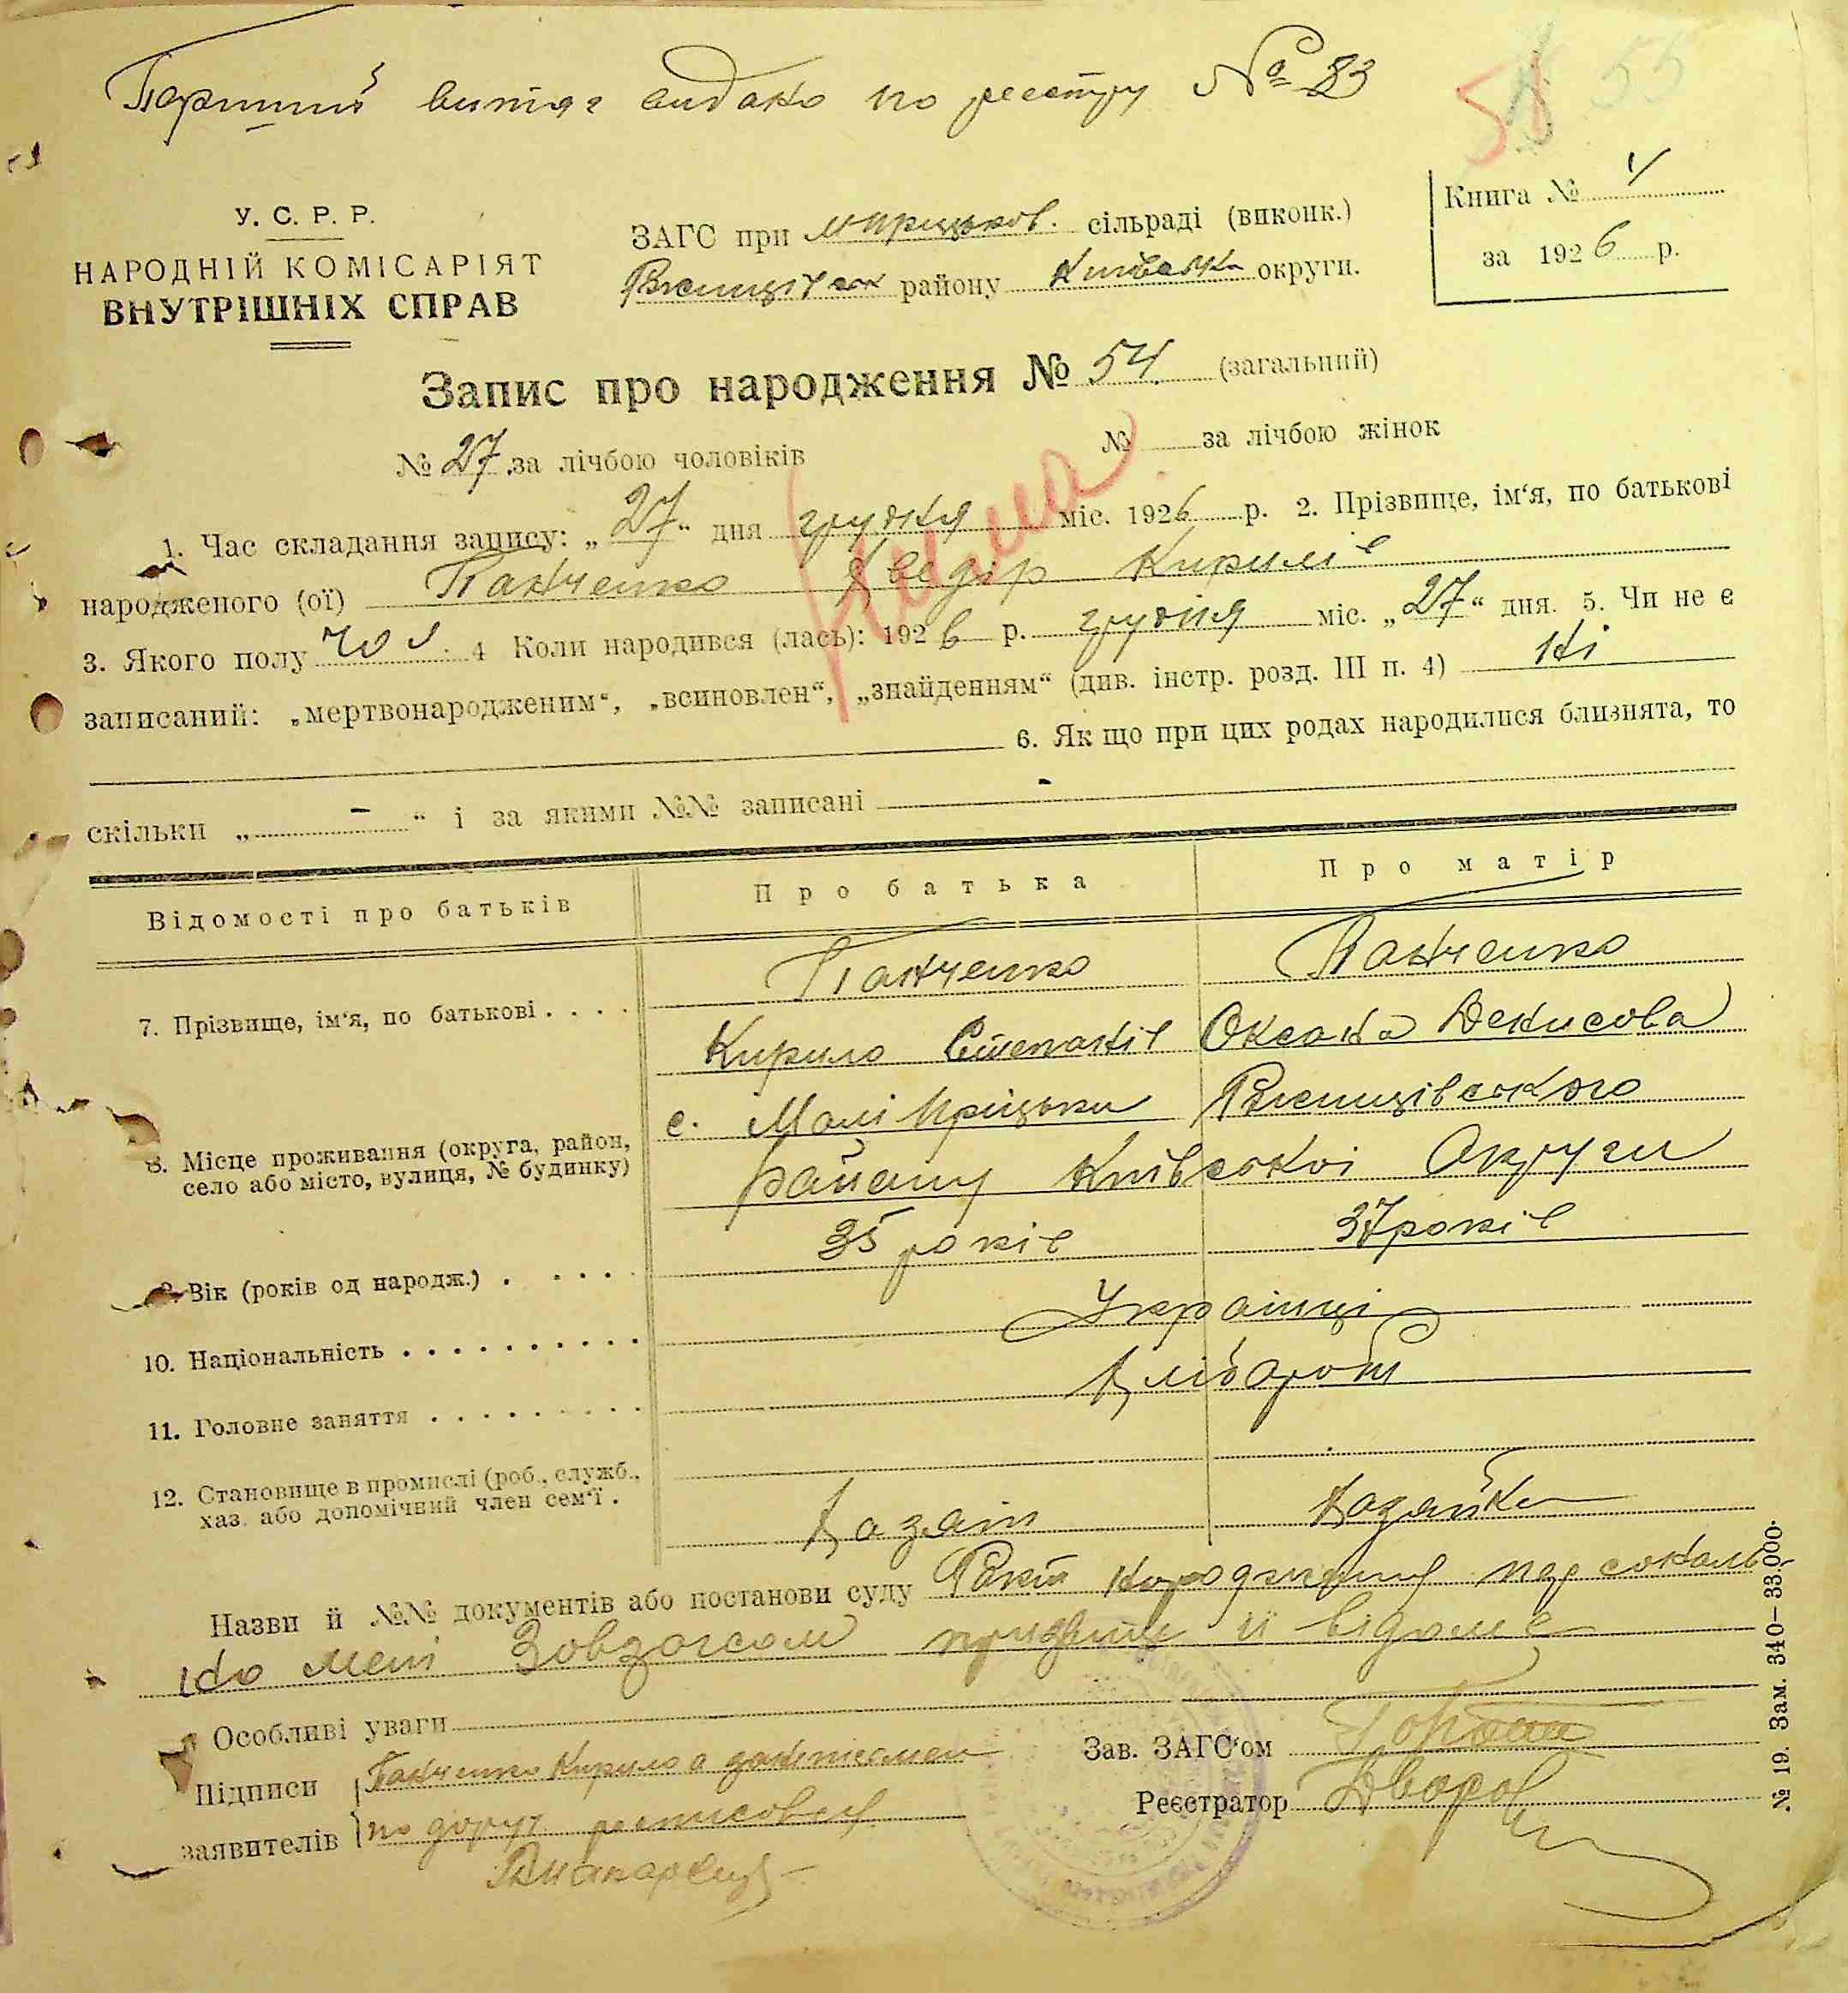 Перший витяг видано по реєстру № 23
54 55
У. С. Р. Р.
НАРОДНІЙ КОМІСАРІЯТ
ВНУТРІШНІХ СПРАВ
ЗАГС при сільраді (виконк.)
району Київська округи.
Книга №
за 1926 р.
Запис про народження № 54 (загальний)
№ 27 за лічбою чоловіків № за лічбою жінок
1. Час складання запису: „27“ дня грудня міс. 1926 р. 2. Прізвище, ім‘я, по батькові
народженого (ої) Панченко Хведір Кирилів
3. Якого полу чол. 4 Коли народився (лась): 1926 р. грудня міс. „27“ дня. 5. Чи не є
записаний: „мертвонародженим“, „всиновлен“, „знайденням“ (див. інстр. розд. III п. 4) Ні
6. Як що при цих родах народилися близнята, то
скільки „ - “ і за якими №№ записані -
Відомості про батьків Про батька Про матір
7. Прізвище, ім‘я, по батькові . . . . Панченко Панченко
Кирило Степанів Оксана Денисова
8. Місце проживання (округа, район, с. Малі Прицьки Ржищівського
село або місто, вулиця, № будинку) Району Київської Округи
9. Вік (років од народж.) . . . . . 35 років 37 років
10. Національність . . . . . . . . . . Українці
11. Головне заняття . . . . . . . . . Хлібороби
12. Становище в промислі (роб., служб.,
хаз. або допомічний член сем‘ї . Хазяїн Хазяйка
Назви й №№ документів або постанови суду Факт народження персональ
но мені Завзагсом й відоме
Особливі уваги
Підписи Панченко Кирило а
заявителів по доруч. росписовся
Зав. ЗАГС‘ом
Реєстратор
№ 19. Зам. 340—33.000.